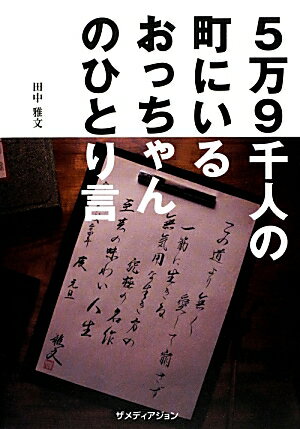 5万9千人の
町にいる
おっちゃん
のひとり言
田中 雅文
この道より無く
一筋に生きる
愛して崩さず
無気用な生き方の
究極の名作
至美の味わい人生
元旦
雅文
ザメディアジョン